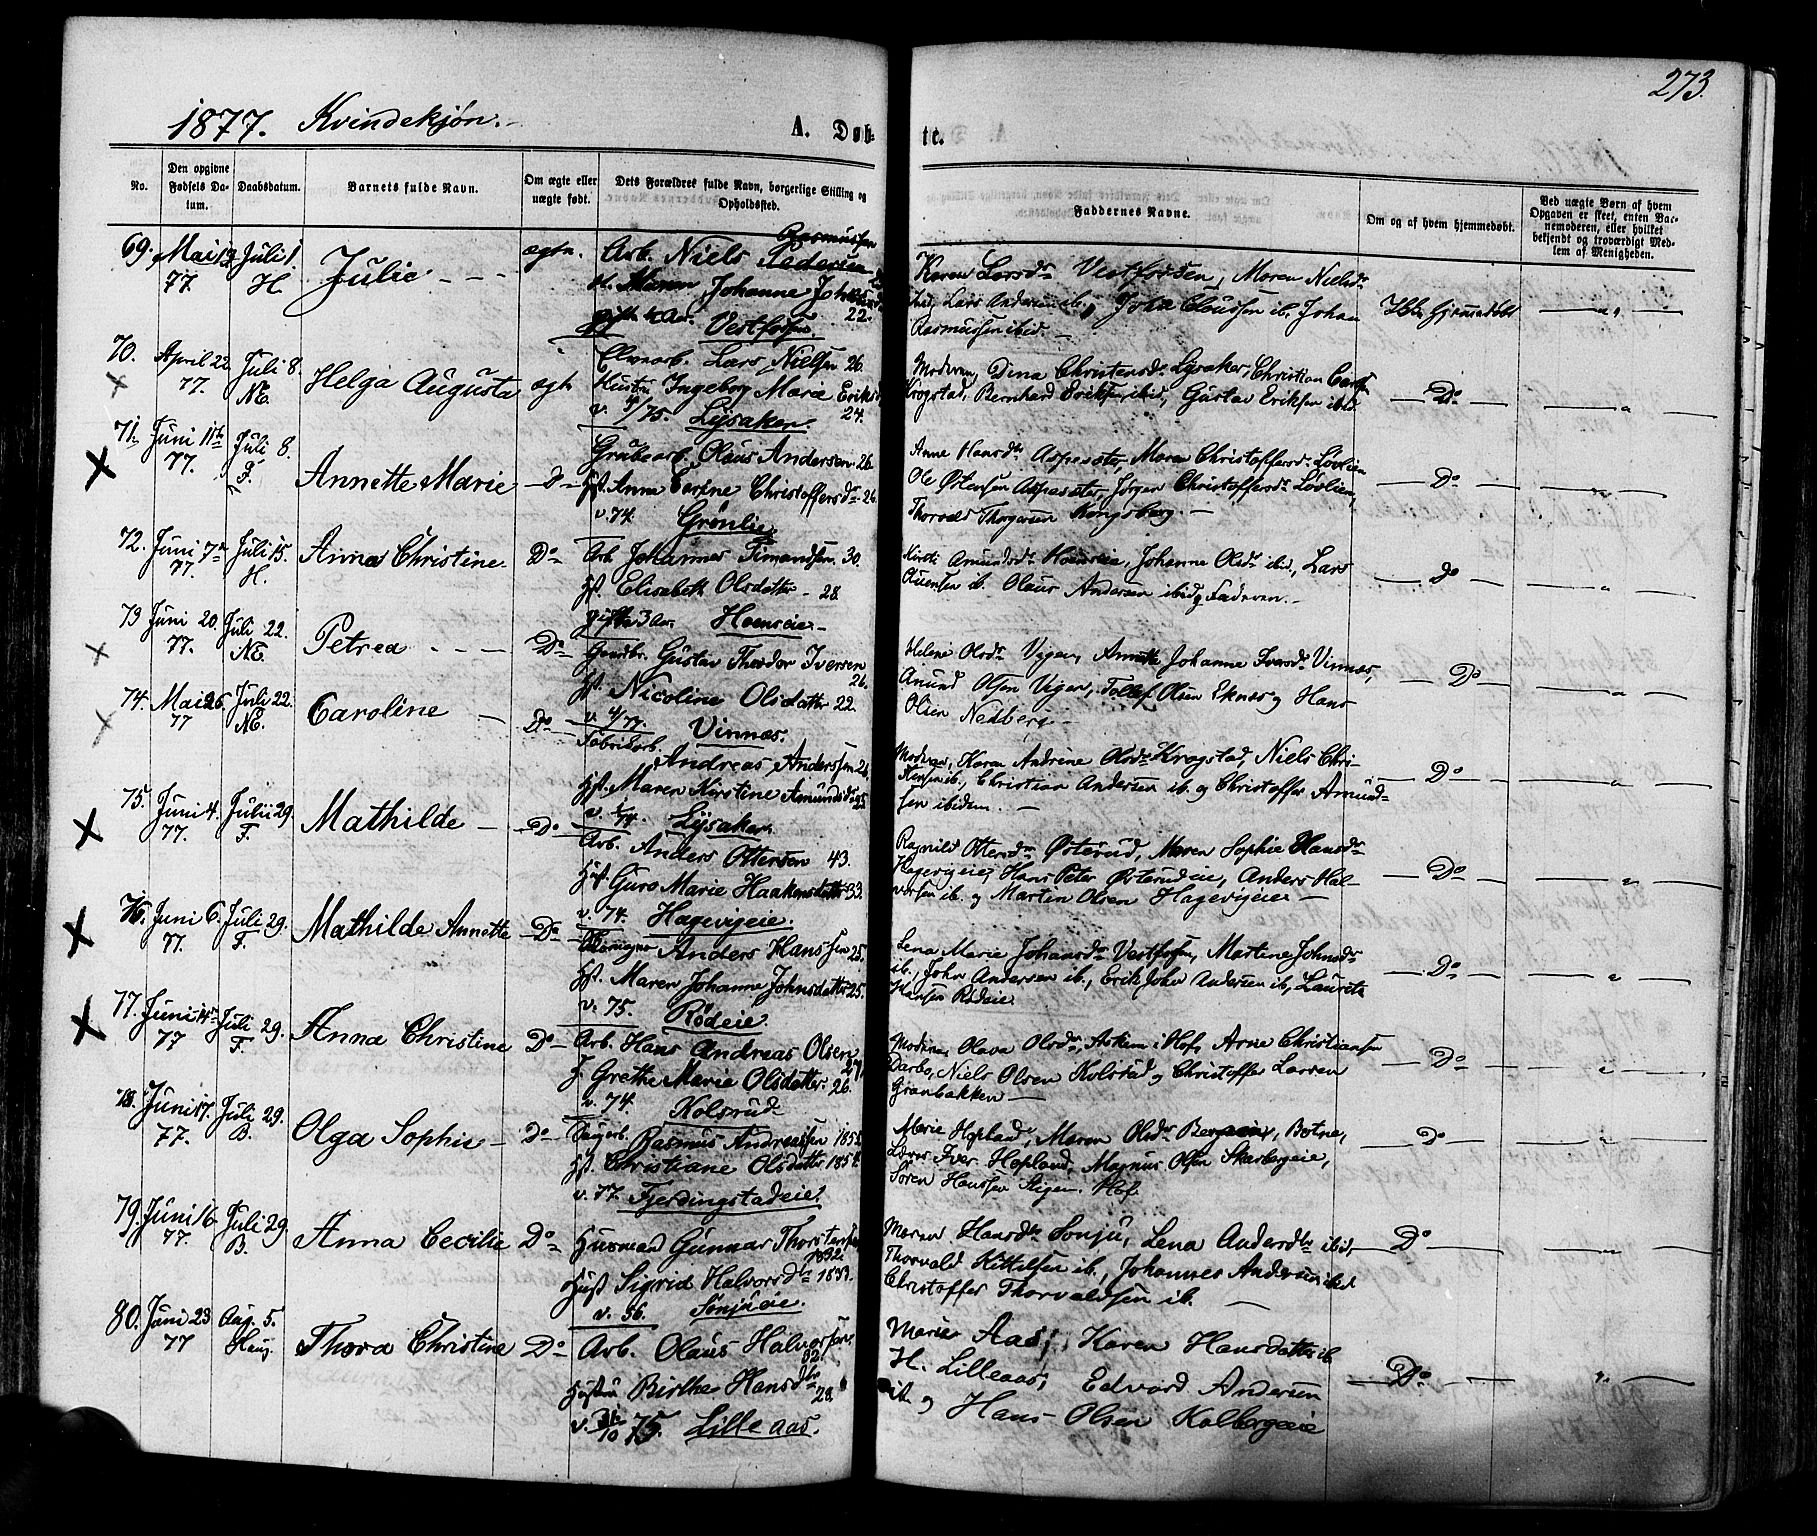 273.
1877. Kvindekjøn.
A. Døbte.
No.
Den opgivne Fødsels Datum.
Daabsdatum.
Barnets fulde Navn.
Om ægte eller uægte født.
Dets Forældres fulde Navn, borgerlige Stilling og Opholdssted.
Faddernes Navne.
Om og af hvem hjemmedøbt.
Ved uægte Børn af hvem Opgaven er skeet, enten Barnemoderen, eller hvilket bekjendt og troværdigt Medlem af Menigheden.
69. Mai 77. Juli 1. H. Julie ægte.
Arb. Niels Pedersen Rasmussen
Maren Johanne
22.
gift 4 Aar. Vestfossen
Karen Larsdr Vestfossen, Maren Nielsdr
ibid, Lars Andersen ib., John Claussen ib. Johan
Rasmussen ibid.
Ikke hjemmedøbt
70. April 22 77. Juli 8. NE. Helga Augusta ægte
Elvearb. Lars Nielsen 26.
Hustru Ingeborg Marie Eriksd
v. /75. Lysaker. 24.
Moderen, Dina Christensdr Lysaker, Christian
Krogstad, Bernhard Eriksen ibid, Gustav Eriksen ibid.
Do
71. Juni 11te 77. Juli 8. F. Annette Marie D
Grubearb. Olaus Andersen 26
Hst. Anne Christoffersdr 26.
v. 74. Grønlie
Anne Hansdtr Maren Christoffersd. Løvlien
Ole Østensen Jørgen Christoffersdr Løvlien,
Thorvald Thorgersen Kongsberg.
Do
72. Juni 7de 77. Juli 15. H. Anna Christine Do
Arb Johannes Simondsen 30.
Hst Elisabeth Olsdatter 28.
gifte 3 Aar. Hoenseie
Kirsti Amundsdr Hoenseie, Johanne Olsdr ibid., Lars
ib. Olaus Andersen ibid og Faderen.
Do
73 Juni 20. 77. Juli 22. NE. Petrea Do
Gaardbr. Gustav Theodor Iversen
26.
Hst. Nicoline Olsdatter 22.
v. 4/77. Vinnæs.
Helene Olsdr Viger, Annette Johanne Iversdr Vinnæs,
Amund Olsen Viger, Tollef Olsen Eknes og Hans
Olsen Nedberg
Do
74. Mai 26. 77 Juli 22. NE. Caroline Do
Fabrikarb.
Andreas Anderssen 26.
Hst. Maren Kirstine Amundsdr 25.
v. /74. Lysaker
Moderen, Karen Andrine Olsdr Krogstad, Niels Chri-
stensen ib., Christian Andersen ib. og Christoffer Amund-
sen ibidem.
Do
75. Juni 4. 77. Juli 29. F. Mathilde Do
Arb. Anders Ottersen 43.
Hst. Guro Marie Haakensdatter 33.
v. 74. Hagevigeie.
Ragnild Ottersdr Østerud, Maren Sophie Hansdr
Hagevigeie, Hans Peter Østerudeie, Anders Hal-
vorsen ib. og Martin Olsen Hagevigeie
Do
76. Juni 6. 77. Juli 29. F. Mathilde Annette Do
Anders Hanssen 25.
Hst. Maren Johanne Johnsdatter 25.
v. 75. Rødeie.
Lena Marie Johansdr Vestfossen, Martine Johnsdr
ib., John Andersen ib., Erik John Andersen ib., Laurits
Hansen Rødeie
Do
77. Juni 14de 77 Juli 29. F. Anna Christine Do
Arb. Hans Andreas Olsen
27.
H. Grethe Marie Olsdatter 26.
v. 74. Kolsrud
Moderen, Olava Olsdr, Askem i Hof, Arne Christiansen
Darbo, Niels Olsen Kolsrud og Christoffer Larsen
Granbakken
Do
78. Juni 17. 77. Juli 29. B. Olga Sophie Do
Sagarb. Rasmus Andreassen
Hst. Christiane Olsdatter 1854.
v. 77. Fjerdingstadeie.
Marie Hopland, Maren Olsdr Bergseie, Botne,
Lærer Iver Hopland, Magnus Olsen Skarbergeie,
Søren Hanssen Stigen. Hof
Do
79. Juni 16. 77. Juli 29. B. Anna Cecilie Do
Husmand Gunnar Thorstensen
1832.
Hust Sigrid Halvorsdtr 1833.
v. 56. Sønjueie.
Maren Hansdtr Sønju, Lena Andersdtr ibid,
Thorvald Kittelsen ib., Johannes Andersen ibid
Christoffer Thorvaldsen ib.
Do
80. Juni 23 77 Aug. 5. Haug. Thora Christine Do
Arb. Olaus Halvorsen
32.
Hustru Birthe Hansdtr
28.
v. /10 75. Lilleaas.
Marie Aas, Karen Hansdatter ib
H. Lilleaas, Edvard Andersen
ib. og Hans Olsen Kolbergeie
Do